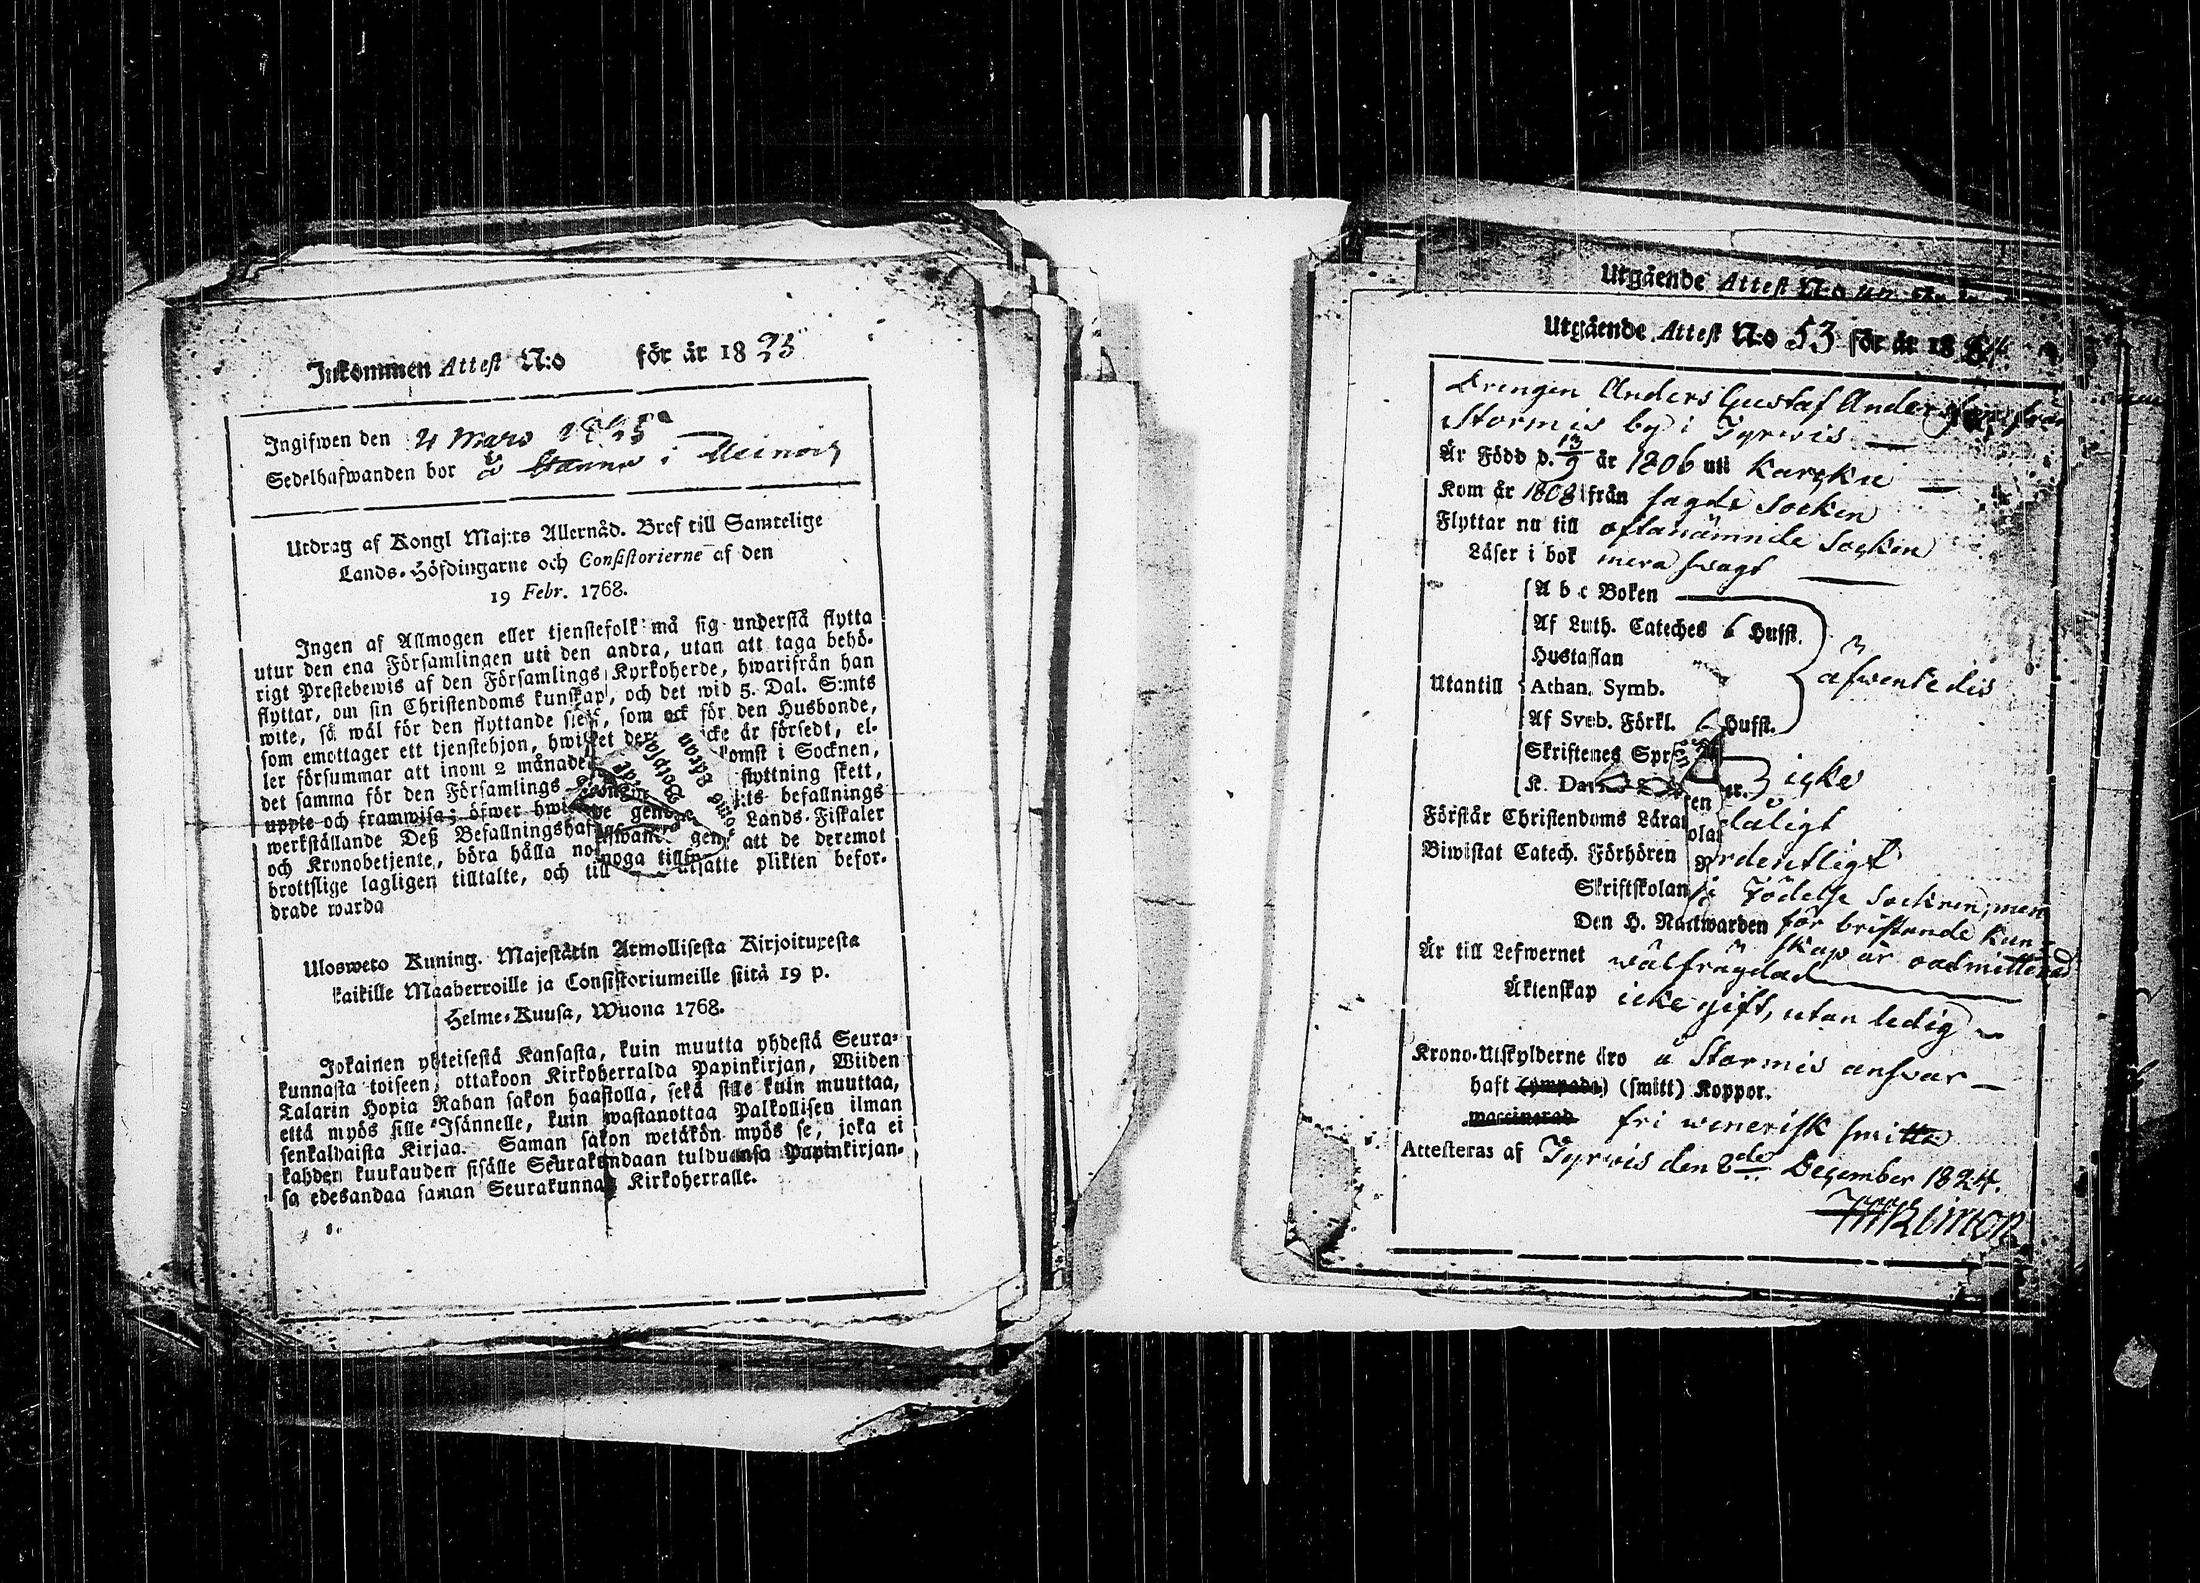 Inkommen Attest N:o för år 1825
Ingifwen den 4 Mars 1825
Sedelhafwanden bor å i
Utdrag af Kongl Maj:ts Allernåd. Bref till Samtelige
Lands-Höfdingarne och Consistorierne af den
19 Febr. 1768.
Ingen af Allmogen eller tjenstefolk må sig understå flytta
utur den ena Församlingen uti den andra, utan att taga behö-
rigt Prestebewis af den Församlings Kyrkoherde, hwarifrån han
flyttar, om sin Christendoms kunskap, och det wid 5. Dal. S:mts
wite, så wäl för den flyttande sjelf, som ock för den Husbonde,
som emottager ett tjenstehjon, hwilket der icke är försedt, el-
ler försummar att inom 2 månader komst i Socknen,
det samma för den Församlings flyttning skett,
uppte och framwisa; öfwer hwilke gen :ts befallnings
werkställande Deß Befallningshafwande gen Lands-Fiskaler
och Kronobetjente, böra hålla noga att de deremot
brottslige lagligen tilltalte, och till utsatte plikten befor-
drade warda
Ulosweto Kuning. Majestätin Armollisesta Kirjoituxesta
kaikille Maaherroille ja Consistoriumeille siitä 19 p.
Helme-Kuusa, Wuona 1768.
Jokainen yhteisestä Kansasta, kuin muutta yhdestä Seura-
kunnasta toiseen, ottakoon Kirkoherralda Papinkirjan, Wiiden
Talarin Hopia Rahan sakon haastolla, sekä sille kuin muuttaa,
että myös sille Isännelle, kuin wastanottaa Palkollisen ilman
senkaldaista Kirjaa. Saman sakon wetäkön myös se, joka ei
kahden kuukauden sisälle Seurakundaan tulduansa Papinkirjan-
sa edesandaa saman Seurakunnan Kirkoherralle.
Utgående Attest N:o
Utgående Attest N:o 53 för år 1824.
Drengen Anders Gustaf Andersson från
Stormis by i Tyrwis
Är Född d. 13/9 år 1806 uti Karkku
Kom år 1808 från sagde Socken
Flyttar nu till oftanämnde Socken
Läser i bok mera swagt
A b c Boken
Af Luth. Cateches 6 Hufst.
Hustaflan
Utantill Athan. Symb. äfwenledis
Af Sveb. Förkl. 6 Hufst.
Skriftenes Spr
K. Da r. icke
Förstår Christendoms Läran dåligt
Biwistat Catech. Förhören ordentligt
Skriftskolan i Födelse Socknen, men
Den H. Nattwarden för bristande kun-
skap är oadmitterad
Är till Lefwernet wälfrägdad
Äktenskap icke gift, utan ledig
Krono-Utskylderne äro å Stormis answar
haft (ympade) (smitt) Koppor.
waccinerad fri wenerisk smitta
Attesteras af Tyrwis den 8de December 1824.